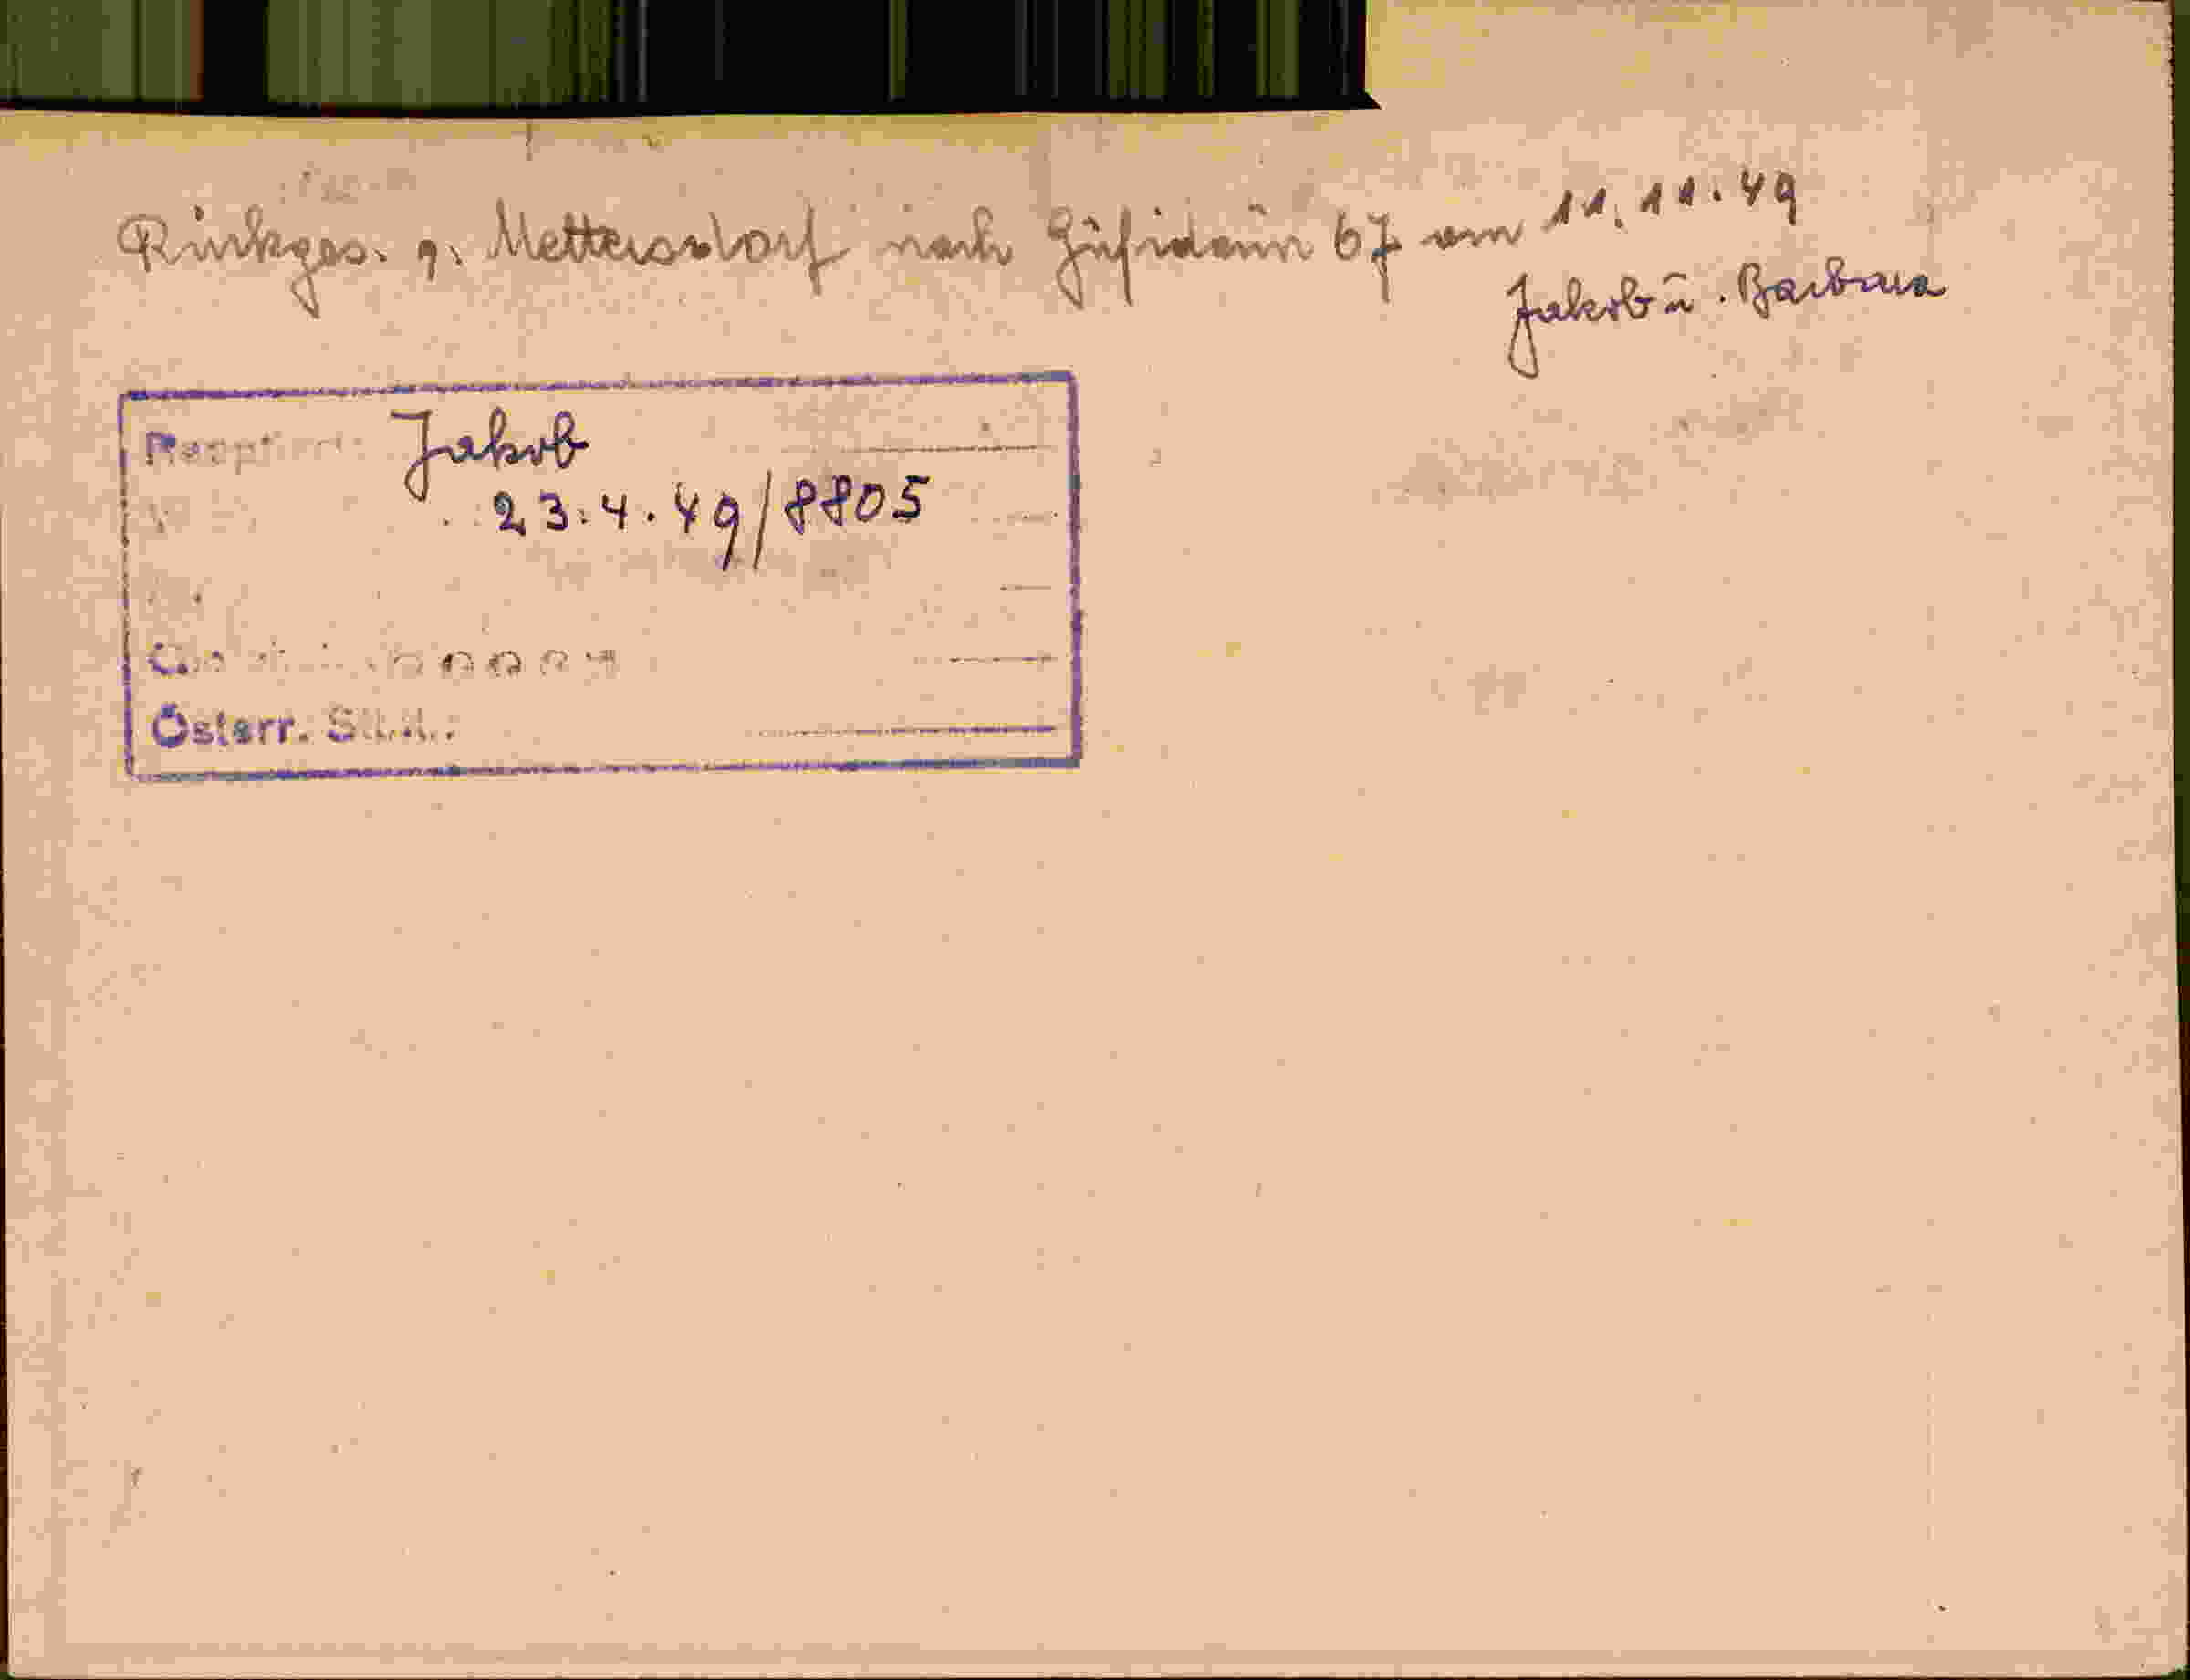 Rückges. g. Mettersdorf nach Gufidaun 67 am 11.11.49
Jakob u. Barbara
Reoptiert: Jakob
23.4.49/8805
Österr. Stb.